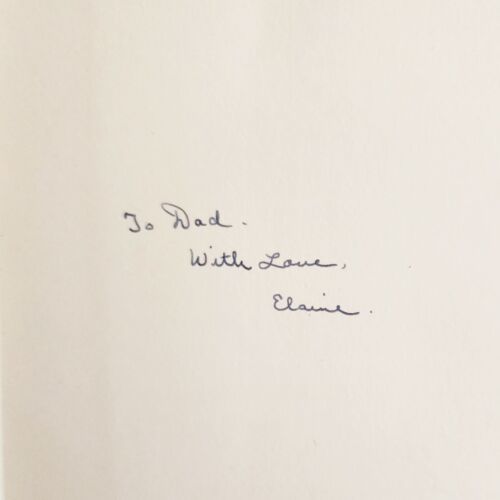 To Dad.
With Love,
Elaine.